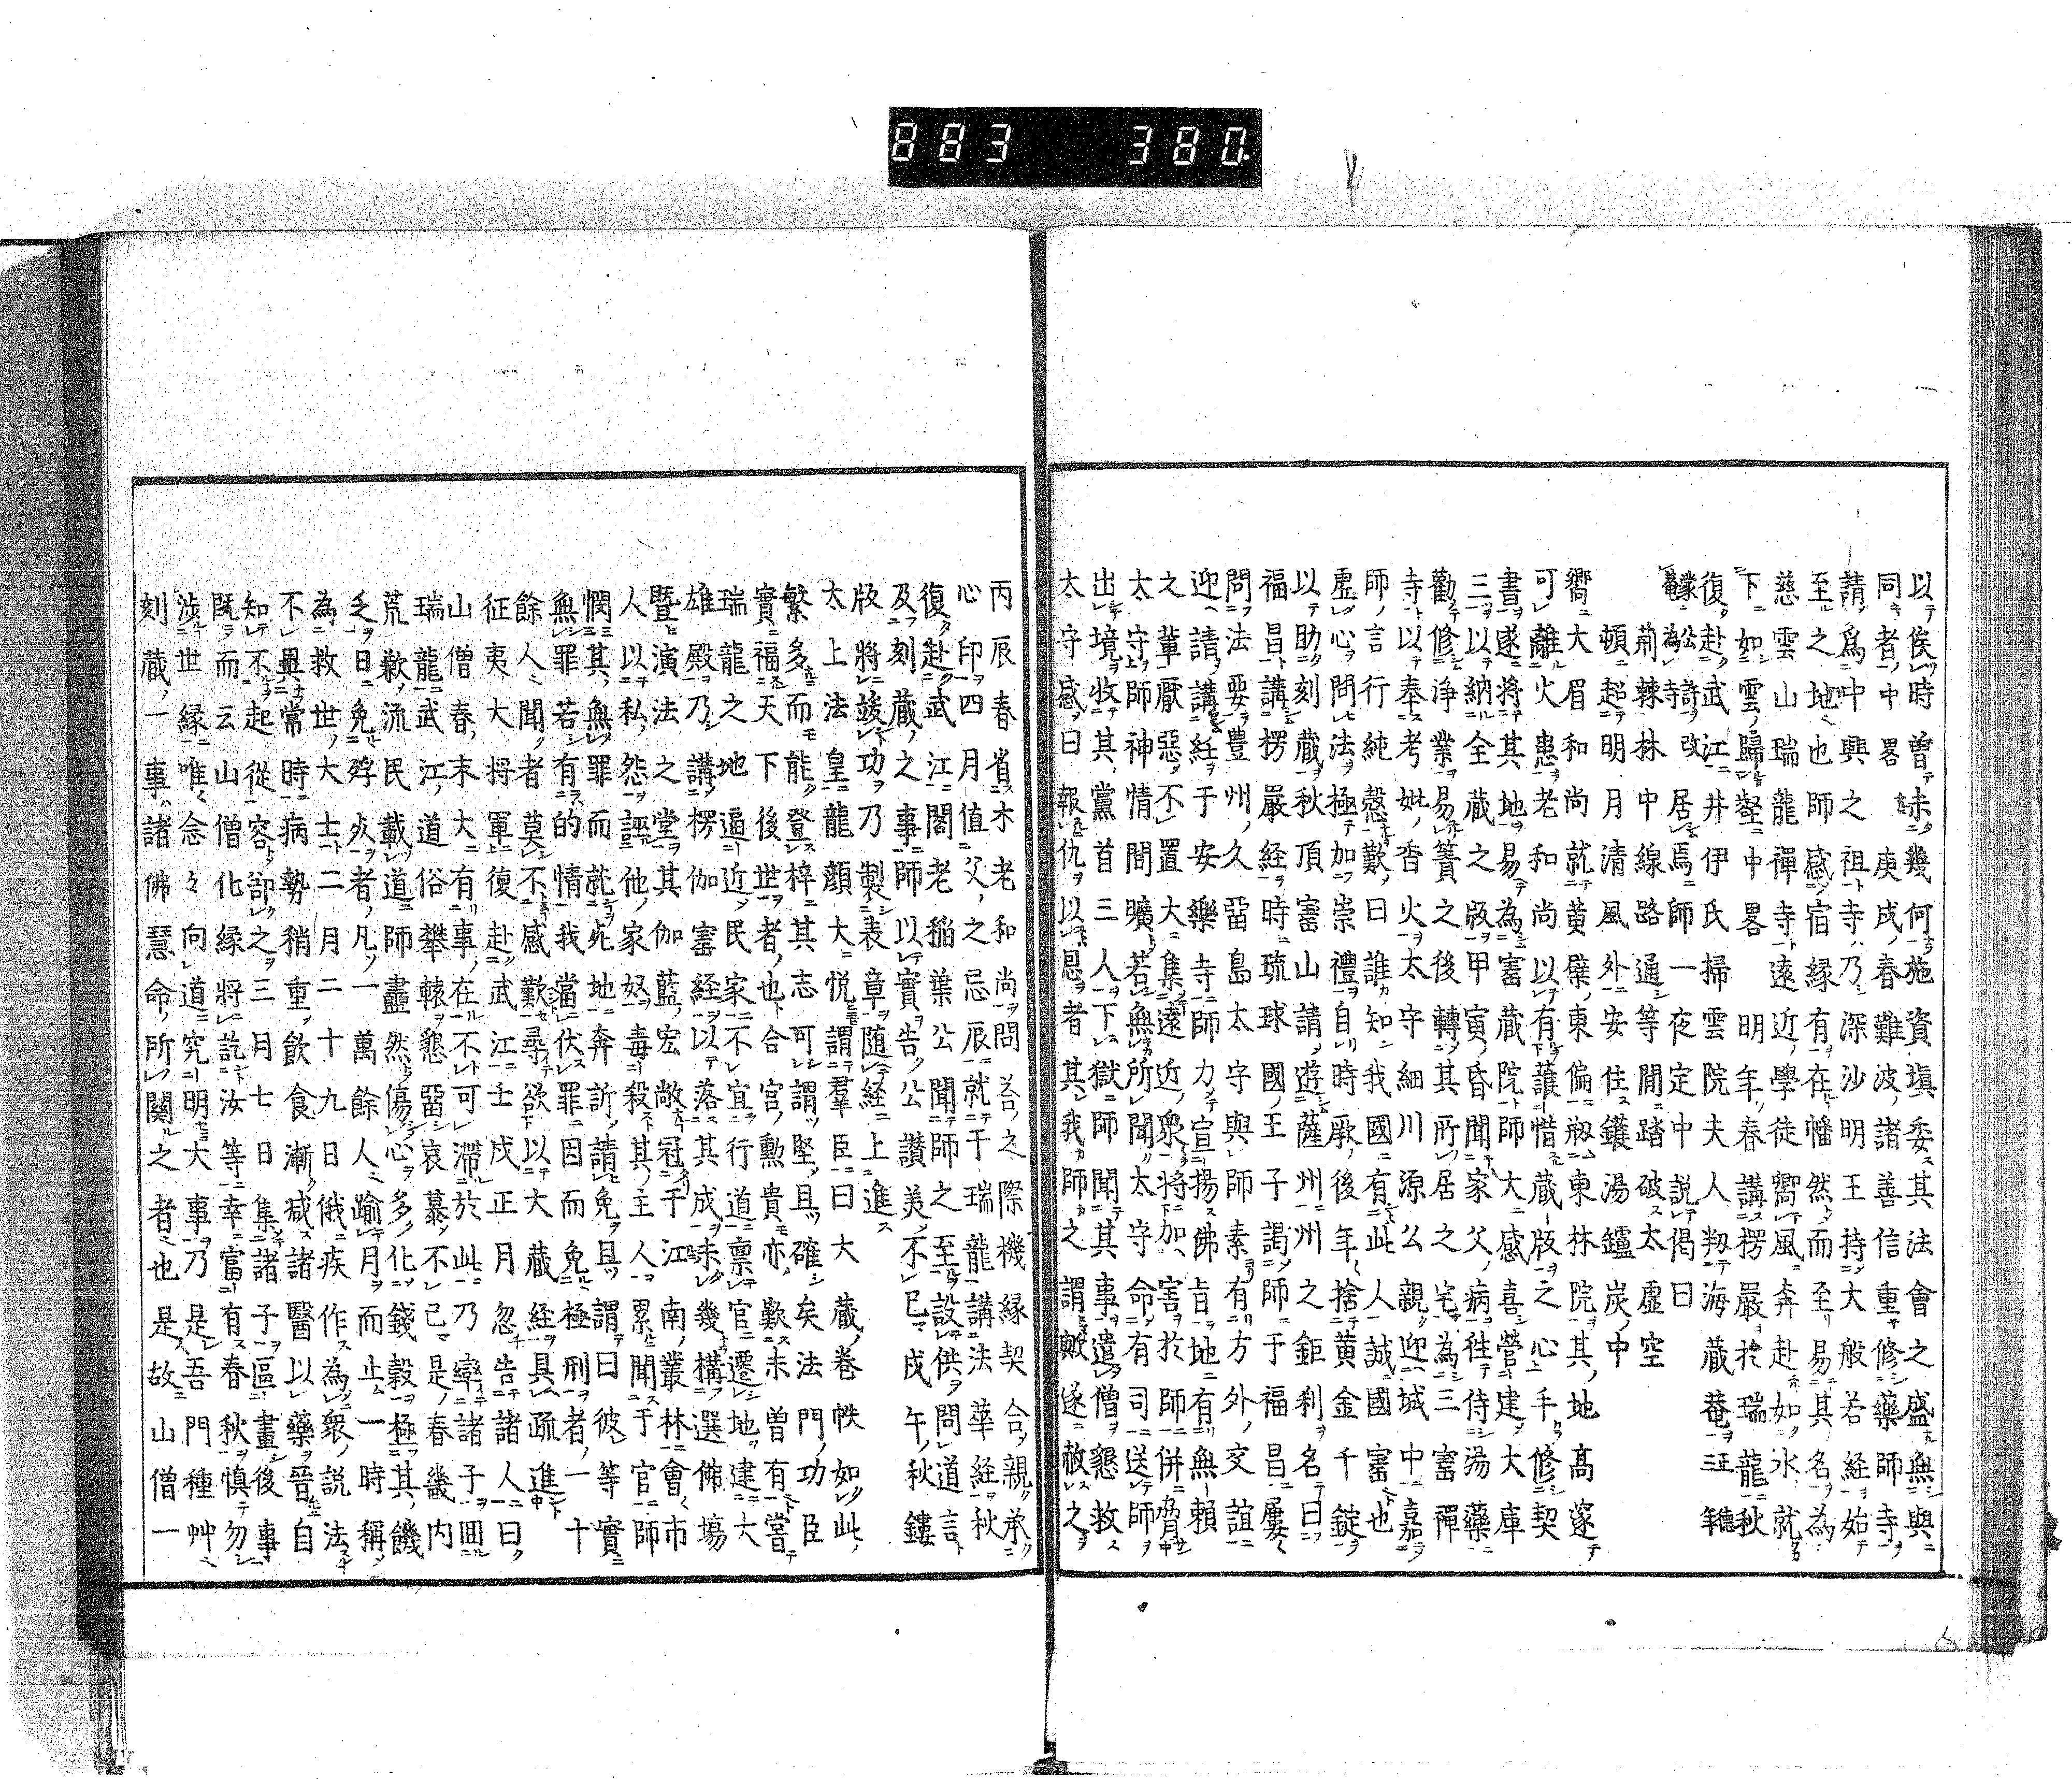 883 380
以俟時曾未幾何施資塡委其法會之盛無與
同者中畧庚戌春難波諸善信重修藥師寺
請爲中興之祖寺乃深沙明王持大般若經始
至之地也師感宿縁有在幡然而至易其名為
慈雲山瑞龍禪寺遠近學徒嚮風奔赴如水就
下如雲歸壑中畧明年春講楞嚴於瑞龍秋
復赴武江井伊氏掃雲院夫人扨海藏菴
為寺改居焉師一夜定中説偈曰
荊棘林中線路通等閒踏破太虛空
頓超明月清風外安住鑊湯鑪炭中
嚮大眉和尚就黄檗東偏剏東林院其地髙邃
可離火患老和尚以有護惜藏版之心手修契
書遂將其地易為寶藏院師大感喜營建大庫
三以納全藏之版甲寅昏聞家父病往侍湯藥
勸修浄業易簀之後轉其所居之宅為三寶禪
寺以奉考妣香火太守細川源公親迎城中嘉
師言行純愨歎曰誰知我國有此人誠國寶也
虚心問法極加崇禮自時厥後年捨黄金千錠
以助刻藏秋頂寶山請遊薩州州之鉅刹名曰
福昌講楞嚴経時琉球國王子謁師于福昌屢
問法要豊州久畱島太守與師素有方外交誼
迎請講経于安樂寺師力宣揚佛旨地有無頼
之輩厭惡不置大集遠近衆將加害於師併脅
太守師神情間曠若無所聞太守命有司送師
出境收其黨首三人下獄師聞其事遣僧懇救
太守感曰報仇以恩者其我師之謂歟遂赦之
丙辰春省木老和尚問荅之際機縁契合親承
心印四月值父之忌辰就于瑞龍講法華経秋
復赴武江閤老稲葉公聞師之至設供問道言
及刻藏之事師以實告公讃美不已戊午秋鏤
版將竣功乃製表章随経上進
太上法皇龍顔大悦謂羣臣曰大藏卷帙如此
繁多而能登梓其志可謂堅且確矣法門功臣
實福天下後世者也合宮勲貴亦歎未曾有當
瑞龍之地逼近民家不宜行道稟官遷地建大
雄殿乃講楞伽寶経以落其成未幾構選佛場
暨演法之堂其伽藍宏敞冠于江南叢林會市
人以私怨誣他家奴毒殺其主人累聞于官師
憫其無罪而就死地奔訴請免且謂曰彼等實
無罪若有的情我當伏罪因而免極刑者一十
餘人聞者莫不感歎尋欲以大藏経具疏進
征夷大將軍復赴武江壬戌正月忽告諸人曰
山僧春末大有事在不可滯於此乃率諸子囬
瑞龍武江道俗攀轅懇畱哀慕不已是春畿内
荒歉流民載道師盡然傷心多化錢穀極其饑
乏日免殍死者凡一萬餘人踰月而止一時稱
為救世大士二月二十九日俄疾作為衆説法
不異常時病勢稍重飲食漸减諸醫以藥晉自
知不起從容卻之三月七日集諸子區畫後事
既而云山僧化縁將訖汝等幸富有春秋慎勿
渉世縁唯念々向道究明大事乃是吾門種艸
刻藏一事諸佛慧命所關之者也是故山僧一